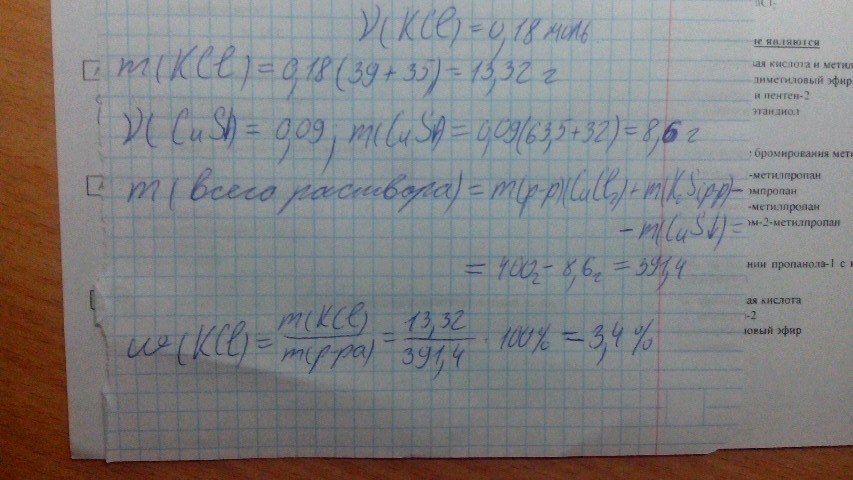 ν(KCl) = 0,18 моль
m(KCl) = 0,18(39+35) = 13,32 г
ν(CuS↓) = 0,09, m(CuS↓) = 0,09(63,5+32) = 8,6 г
m(всего раствора) = m(р-р)(CuCl₂) + m(K₂S(р-р) –
– m(CuS↓) =
= 400г – 8,6г = 391,4
ω(KCl) = m(KCl)/m(р-ра) = 13,32/391,4 · 100% = 3,4%
не являются
ая кислота и метил
диметиловый эфир
и пентен-2
этандиол
бромирования мета
-метилпропан
омпропан
-метилпропан
ом-2-метилпропан
нии пропанола-1 с к
ая кислота
-2
ловый эфир